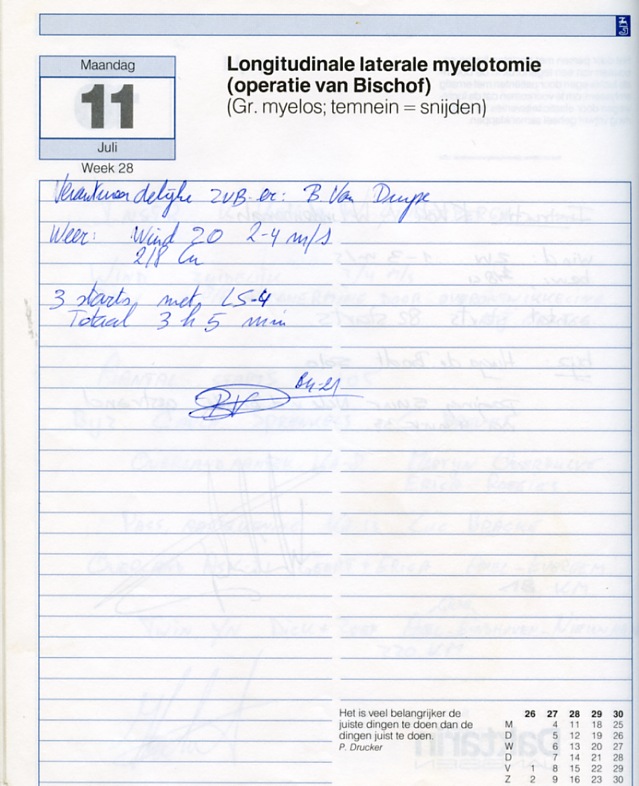 Maandag
11
Juli
Week 28
Longitudinale laterale myelotomie
(operatie van Bischof)
(Gr. myelos; temnein = snijden)
Verantwoordelijke ZVB-er: B Van
Weer: Wind ZO 2-4 m/s
2/8 Cu
3 starts met LS-4
Totaal 3 h 5 min
BV
Het is veel belangrijker de
juiste dingen te doen dan de
dingen juist te doen.
P. Drucker
26 27 28 29 30
M 4 11 18 25
D 5 12 19 26
W 6 13 20 27
D 7 14 21 28
V 1 8 15 22 29
Z 2 9 16 23 30